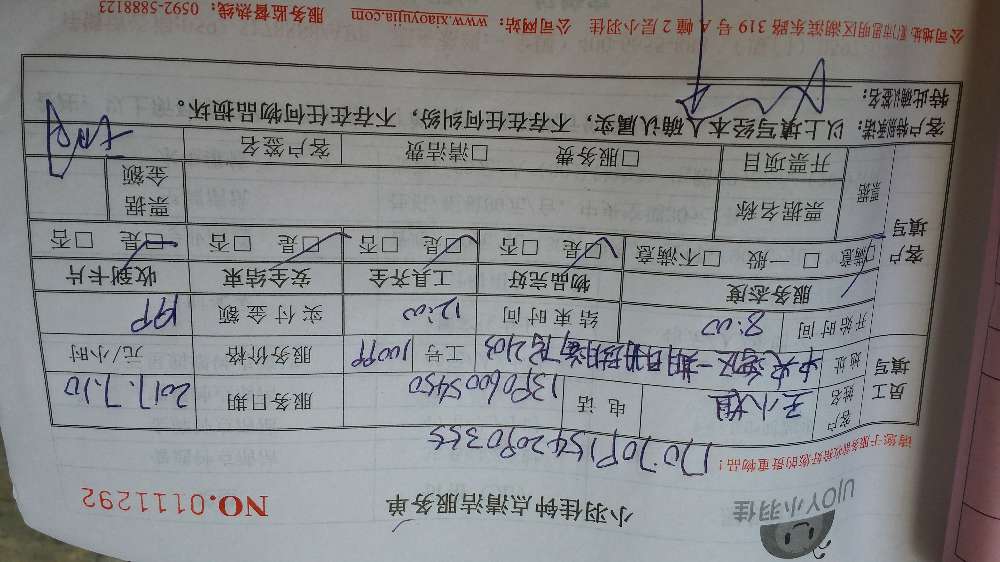 UJOY小羽佳
小羽佳钟点清洁服务单
NO.0111292
请您于服务前收拾好您的贵重物品！
员工填写
客户姓名 王小姐 电话 13806005450 服务日期 2017.7.10
地址 工号 服务价格 元/小时
开始时间 8:00 结束时间 12:00 实付金额
客户填写
服务态度 物品完好 工具齐全 安全结束 收到卡片
□满意 □一般 □不满意 □是 □否 □是 □否 □是 □否 □是 □否
票据 票据名称 票据金额
开票项目 □服务费 □清洁费 客户签名
客户特别承诺：以上填写经本人确认属实，不存在任何纠纷，不存在任何物品损坏。
特此确认签名：
公司地址：厦门市思明区湖滨东路319号A幢2层小羽佳 公司网站：www.xiaoyujia.com 服务监督热线：0592-5888123